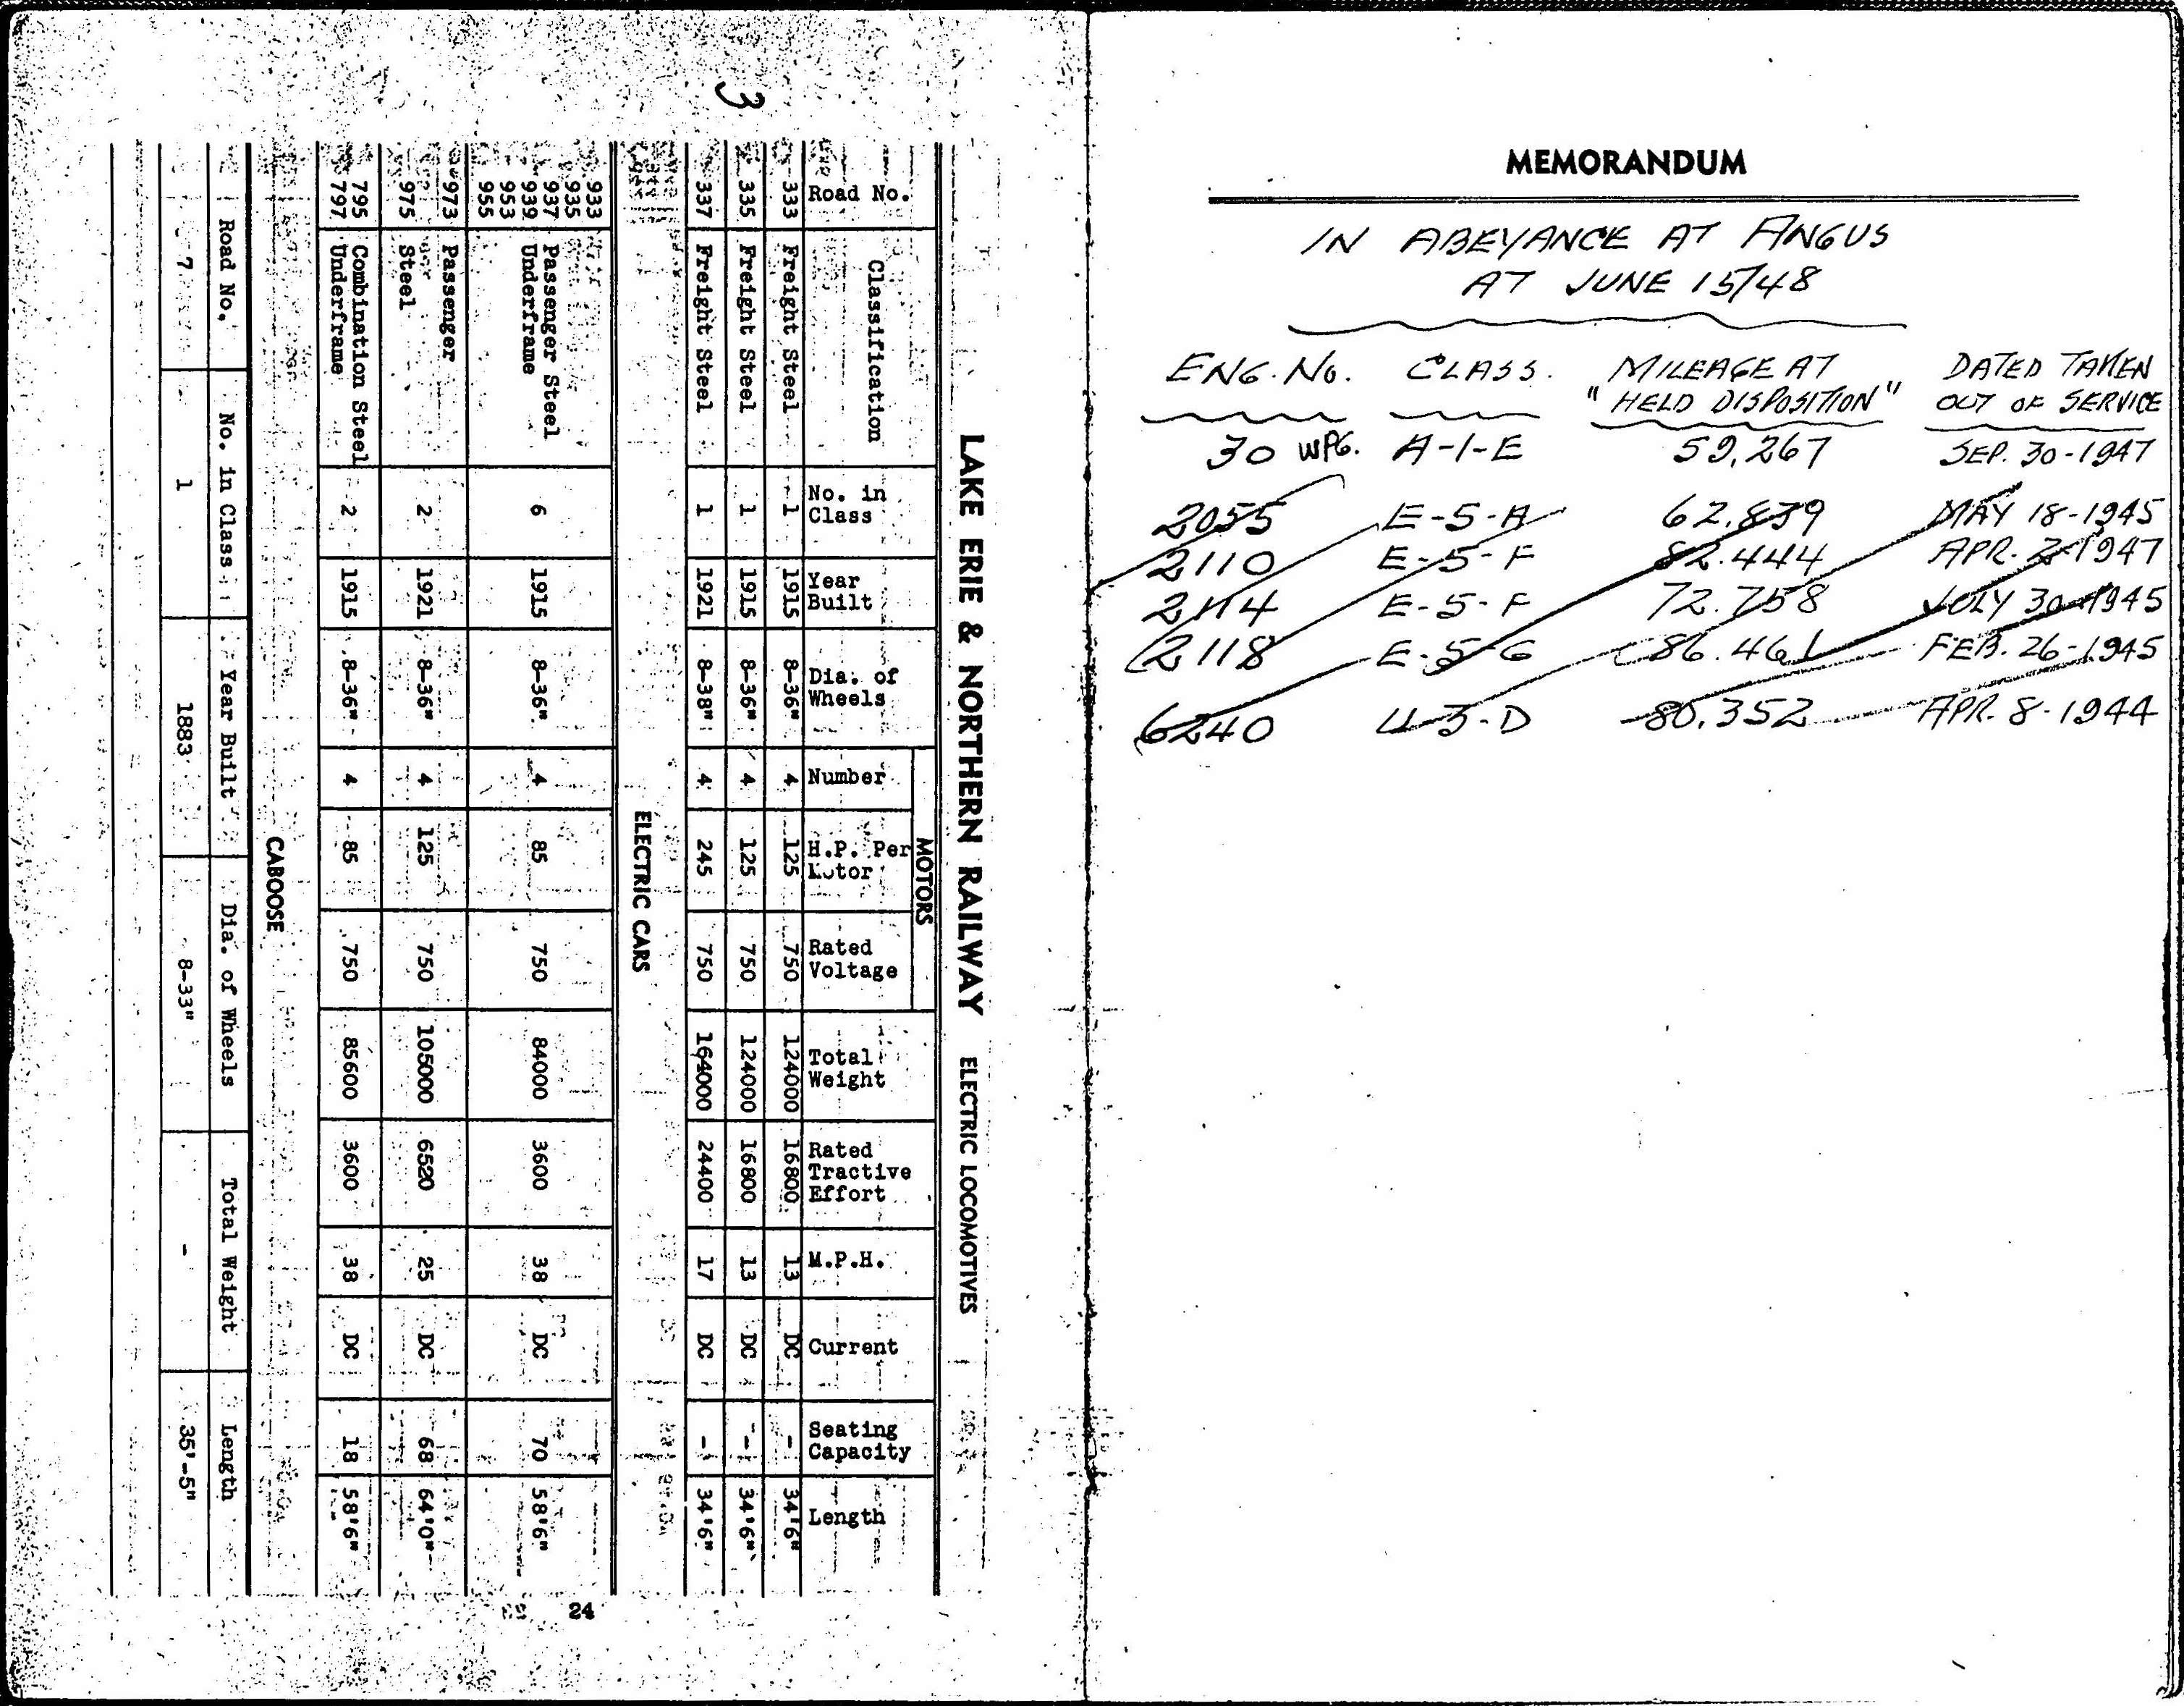 3
LAKE ERIE & NORTHERN RAILWAY ELECTRIC LOCOMOTIVES
MOTORS
Road No. Classification No. in Class Year Built Dia. of Wheels Number H.P. Per Motor Rated Voltage Total Weight Rated Tractive Effort M.P.H. Current Seating Capacity Length
333 Freight Steel 1 1915 8-36" 4 125 750 124000 16800 13 DC - 34'6"
335 Freight Steel 1 1915 8-36" 4 125 750 124000 16800 13 DC - 34'6"
337 Freight Steel 1 1921 8-38" 4 245 750 164000 24400 17 DC - 34'6"
ELECTRIC CARS
933
935
937 Passenger Steel
939 Underframe 6 1915 8-36" 4 85 750 84000 3600 38 DC 70 58'6"
953
955
973 Passenger
975 Steel 2 1921 8-36" 4 125 750 105000 6520 25 DC 68 64'0"
795 Combination Steel
797 Underframe 2 1915 8-36" 4 85 750 85600 3600 38 DC 18 58'6"
CABOOSE
Road No. No. in Class Year Built Dia. of Wheels Total Weight Length
7 1 1883 8-33" - 35'-5"
24
MEMORANDUM
IN ABEYANCE AT ANGUS
AT JUNE 15/48
ENG. No. CLASS. MILEAGE AT DATED TAKEN
"HELD DISPOSITION" OUT OF SERVICE
30 WPG. A-1-E 59,267 SEP. 30-1947
2055 E-5-A 62.839 MAY 18-1945
2110 E-5-F 82.444 APR. 2-1947
2114 E-5-F 72.758 JULY 30-1945
2118 E-5-G 86.461 FEB. 26-1945
6240 U-3-D 80.352 APR. 8-1944